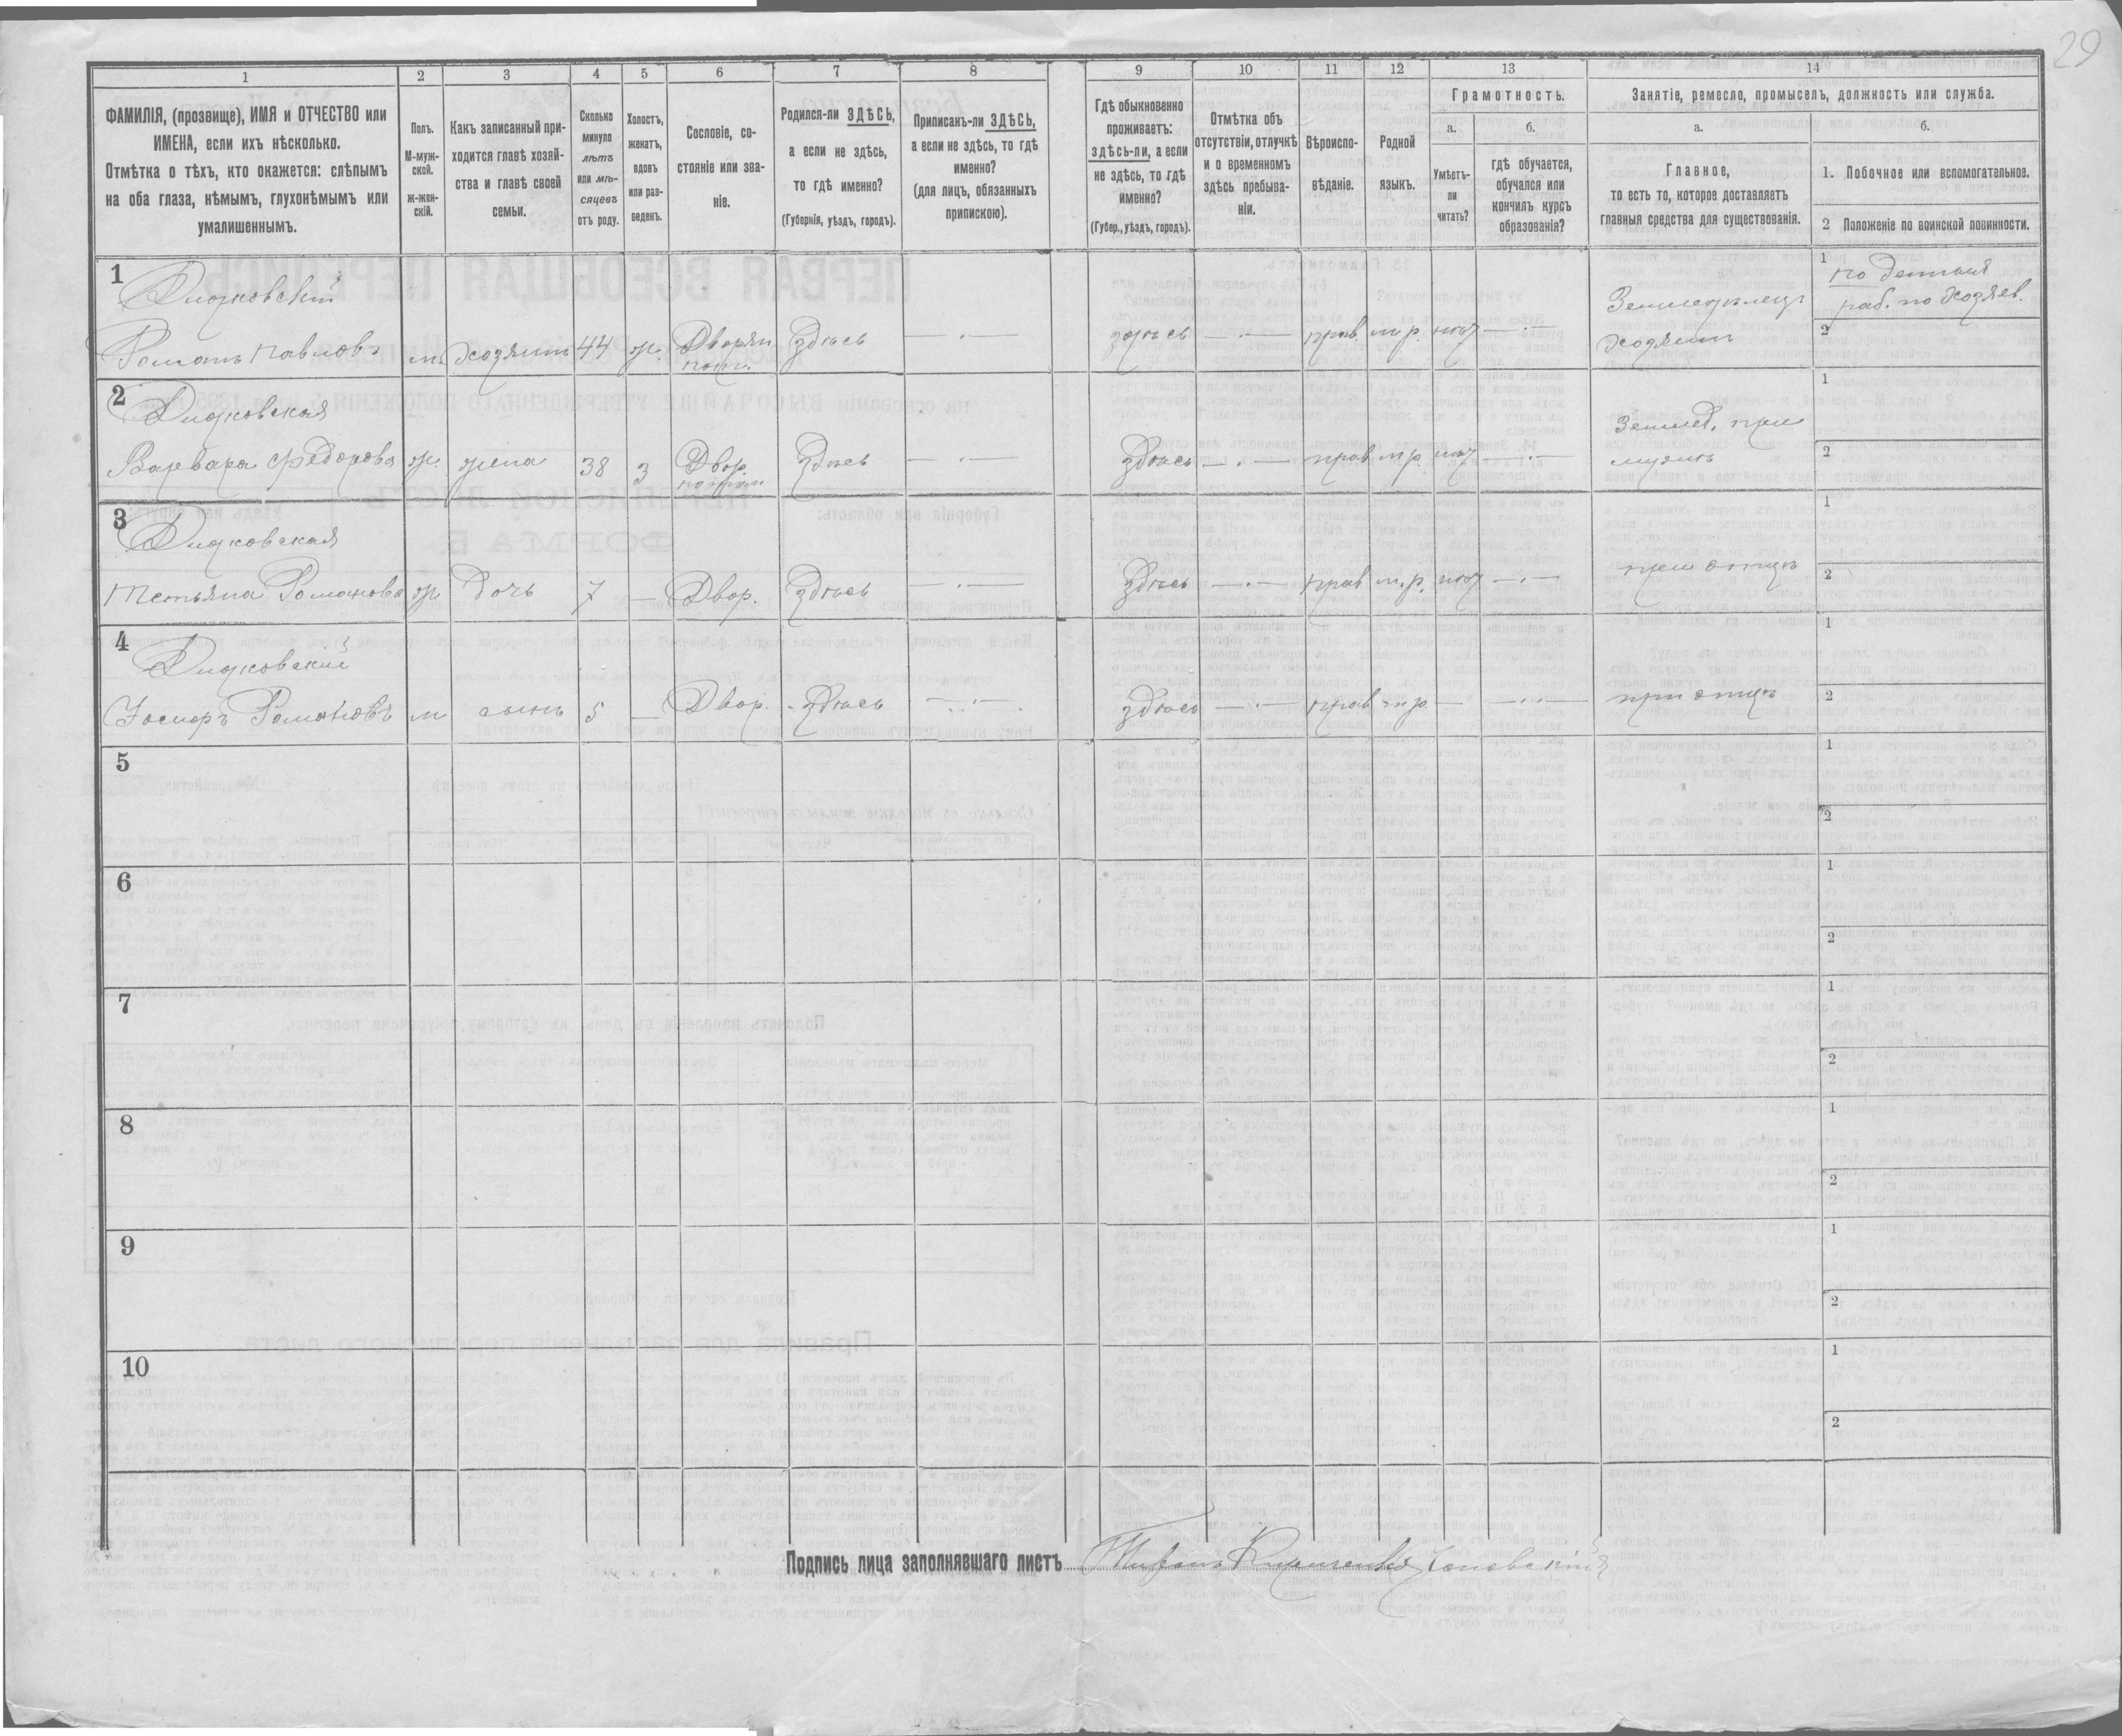 29
1
2
3
4
5
6
7
8
9
10
11
12
13
14
ФАМИЛІЯ, (прозвище), ИМЯ и ОТЧЕСТВО или
ИМЕНА, если ихъ нѣсколько.
Отмѣтка о тѣхъ, кто окажется: слѣпымъ
на оба глаза, нѣмымъ, глухонѣмымъ или
умалишеннымъ.
Полъ.
М-муж-
ской.
ж-жен-
скій.
Какъ записанный при-
ходится главѣ хозяй-
ства и главѣ своей
семьи.
Сколько
минуло
лѣтъ
или мѣ-
сяцевъ
отъ роду.
Холостъ,
женатъ,
вдовъ
или раз-
веденъ.
Сословіе, со-
стояніе или зва-
ніе.
Родился-ли ЗДѢСЬ,
а если не здѣсь,
то гдѣ именно?
(Губернія, уѣздъ, городъ).
Приписанъ-ли ЗДѢСЬ,
а если не здѣсь, то гдѣ
именно?
(для лицъ, обязанныхъ
припискою).
Гдѣ обыкновенно
проживаетъ:
здѣсь-ли, а если
не здѣсь, то гдѣ
именно?
(Губер., уѣздъ, городъ).
Отмѣтка объ
отсутствіи, отлучкѣ
и о временномъ
здѣсь пребыва-
ніи.
Вѣроиспо-
вѣданіе.
Родной
языкъ.
Грамотность.
а.
Умѣетъ-
ли
читать?
б.
гдѣ обучается,
обучался или
кончилъ курсъ
образованія?
Занятіе, ремесло, промыселъ, должность или служба.
а.
Главное,
то есть то, которое доставляетъ
главныя средства для существованія.
б.
1. Побочное или вспомогательное.
2 Положеніе по воинской повинности.
1
Дидковскій
Романъ Павловъ м хозяинъ 44 ж. Дворян пот. Здѣсь — · — здѣсь — · — прав. м.р. нѣт — · —
Земледѣлецъ
хозяинъ
1 раб. по хозяев.
2
2
Дидковская
Варвара Федорова ж. жена 38 з Двор. потом Здѣсь — · — Здѣсь — · — прав м.р. нѣт — · —
Землед. при
мужѣ
1
2
3
Дидковская
Тетьяна Романова ж дочь 7 — Двор. Здѣсь — · — Здѣсь — · — прав м.р. нѣт — · —
при отцѣ
1
2
4
Дидковскій
Романовъ м сынъ 5 — Двор. Здѣсь — · — Здѣсь — · — прав м.р. — — · —
при отцѣ
1
2
5
1
2
6
1
2
7
1
2
8
1
2
9
1
2
10
1
2
Подпись лица заполнявшаго листъ